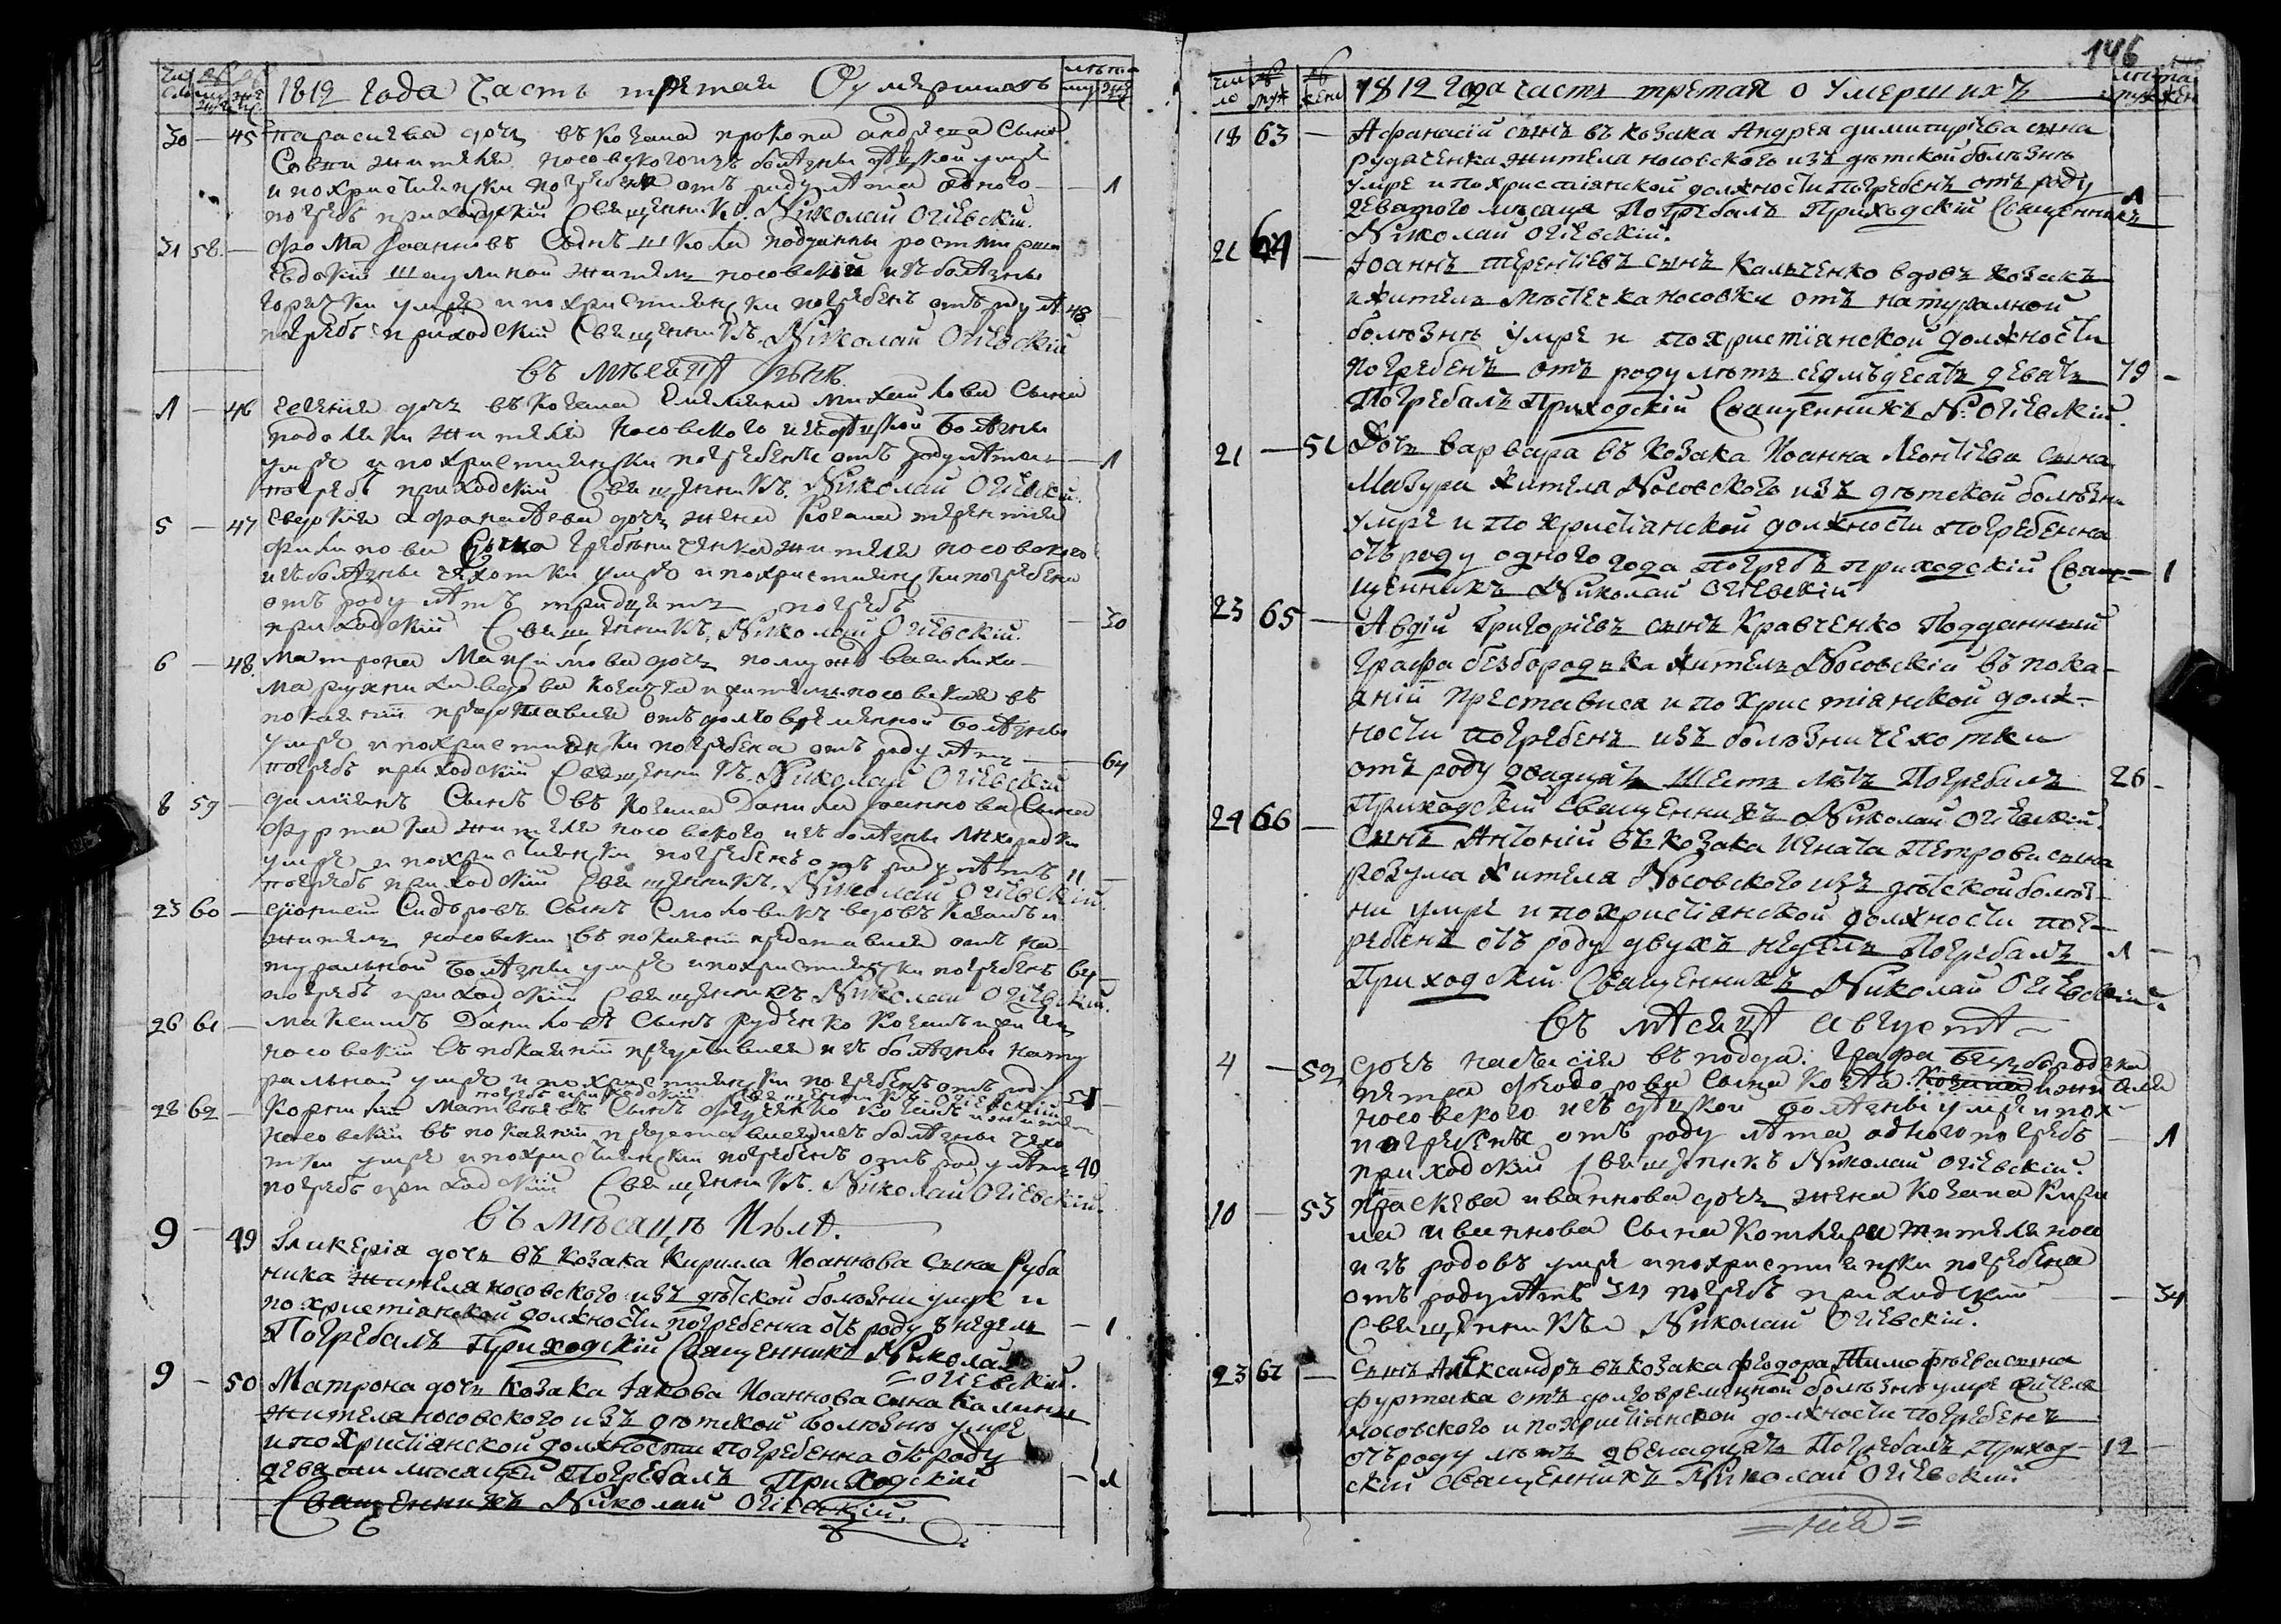 1812 года Часть третая О умершихъ
30 — 45 параскева дочъ въ козака прокопа андреева Сына
жителя носовского изъ болезны детской умре
и похристиянски погребена отъ роду лета одного — 1
погребъ приходскій Священникъ Николай Огіевскій.
31 58. — фома Іоанновъ Сынъ подданный
Евдокіи жителъ носовскій изъ болезны
горячки умре и похристиянски погребенъ отъ роду л. 48
погребъ приходскій Священникъ Николай Огіевскій
въ месяце
1 — 46 дочъ въ козака Емелияна михайлова Сына
жителя Носовского изъ детской болезны
умре и похристиянски погребенна отъ роду лета — 1
погребъ приходскій Священникъ Николай Огіевскій.
5 — 47 евдокия афанасиева дочъ жена козака терентия
филипова Сына гребенниченка жителя носовского
изъ болезны чехотки умре и похристиянски погребена
отъ роду летъ тридцять погребъ
приходскій Священникъ, Николай Огіевскій. — 30
6 — 48. матрона Максимова дочъ
вдова козачка и жителька носовская въ
покаяніи преставися отъ долговременной болезны
умре и похристиянски погребена отъ роду летъ — 64
погребъ приходскій Священникъ Николай Огіевскій
8 59 — дамиянъ Сынъ въ козака Данила Іоаннова Сына
фуртака жителя носовского изъ болезны лихорадки
умре и похристиянски погребенъ отъ роду летъ 11 —
погребъ приходскій Священникъ. Николай Огіевскій.
23 60 — Сидоровъ Сынъ вдовъ козакъ и
жителъ носовскій въ покаяніи преставися отъ на-
туральной болезны умре и похристиянски погребенъ 64
погребъ приходскій Священникъ Николай Огіевскій.
26 61 — максимъ Даниловъ Сынъ руденко козакъ и житель
носовскій въ покаяніи преставися изъ болезны нату
ральной умре и похристиянски погребенъ отъ роду
погребъ приходскій Священникъ Н. Огіевскій
28 62 — корнилій матвеевъ Сынъ козакъ и житель
носовскій въ покаяніи преставися изъ болезны чехо
тки умре и похристиянски погребенъ отъ роду летъ 40
погребъ приходскій Священникъ. Николай Огіевскій.
въ месяцѣ Июле.
9 — 49 Гликерія дочъ въ козака Кирилла Иоаннова сына Руба
ника жителя носовского изъ дѣтской болѣзни умре и
по христіанской должности погребенна отъ роду 8 недель — 1
Погребалъ Приходскій Священникъ Николай
Огіевскій.
9 — 50 Матрона дочъ козака Іакова Иоаннова сына калины
жителя носовского изъ дѣтской болѣзни умре
и по Христіанской должности погребенна отъ роду
девяти мѣсяцей Погребалъ Приходскій — 1
Священникъ Николай Огіевскій.
146
число муж жен 1812 года часть третая о Умершихъ лѣта муж жен
18 63 — Афанасій сынъ въ козака Андрея димитріева сына
рудченка жителя носовского изъ дѣтской болѣзнѣ
умре и по христіянской должности погребенъ отъ роду 1
девятого мѣсяца Погребалъ Приходскій Священникъ
Николай Огіевскій.
21 64 — Іоаннъ терентіевъ сынъ Кальченко вдовъ козакъ
и жителъ мѣстечка носовки отъ натуралной
болѣзнѣ умре и по христіянской должности
погребенъ отъ роду лѣтъ седмъдесятъ девять 79 —
Погребалъ Приходскій Священникъ Н: Огіевскій.
21 — 51 Дочъ варвара въ козака Иоанна Леонтіева сына
Мазура жителя Носовского изъ дѣтской болѣзни
умре и по христіянской должности погребенна
отъ роду одного года погребъ приходскій Свя-
щенникъ Николай Огіевскій — 1
23 65 — Авдій Григоріевъ сынъ Кравченко Подданный
графа безбородька жителъ Носовскій въ пока-
яній преставися и по христіянской долж-
ности погребенъ изъ болѣзни чехотки
отъ роду двадцять шесть лѣтъ Погребалъ 26 —
Приходскій Священникъ Николай Огіевскій.
24 66 — Сынъ Антоній въ козака Игната Петрова сына
розума жителя Носовского изъ дѣтской болѣз-
ни умре и по христіянской должности пог-
ребенъ отъ роду двухъ недель Погребалъ 1 —
Приходскій Священникъ Николай Огіевскій.
въ месяце августе
4 — 52 дочъ настасія въ подда: графа безбородька
петра феодорова Сына и жителя
носовского изъ детской болезны умре и пох-
погребенъ отъ роду лета одного погребъ — 1
приходскій Священникъ Николай Огіевскій.
10 — 53 праскева иваннова дочъ жена козака Кири
ла иваннова Сына котляра жителя носо
изъ родовъ умре и похристиянски погребена
отъ роду летъ 34 погребъ приходскій — 34
Священникъ Николай Огіевскій.
23 67 — Сынъ Александръ въ козака феодора Тимофѣева сына
фуртака отъ долговременной болѣзнѣ умре жителя
Носовского и по христіянской должности погребенъ
отъ роду лѣтъ двенадцять Погребалъ Приход- 12 —
скій Священникъ Николай Огіевскій